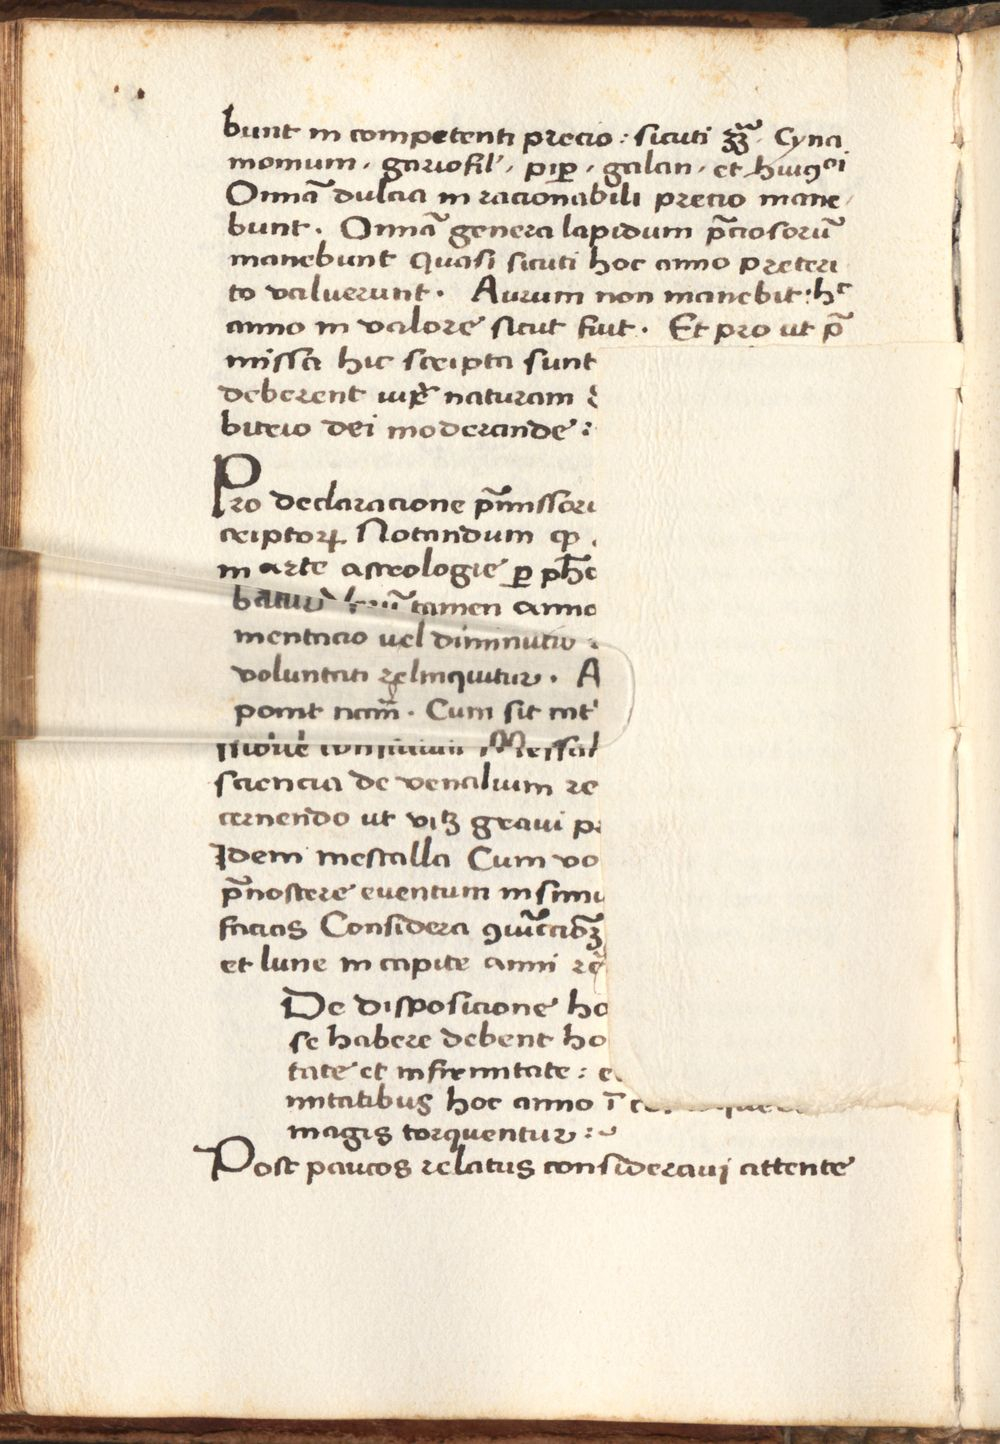 bunt in competenti precio : sicuti zz̃ · Cyna
momum · gariofil' · piꝑ · galan · et huiꝰͦi
Omnā dulcia in racionabili precio mane/
bunt · Omnā genera lapidum p̄ciosorū
manebunt quasi sicuti hoc anno preteri
to valuerunt · Aurum non manebit : hͨ
anno in valore sicut fuit · Et pro ut p̄
missa hic scripta sunt
deberent naturam
bitrio dei moderande :
Pro declaracione p̄missor
criptoꝝ Notandum ꝙ
in arte astrologie ꝑ
tamen anno
mentacio vel diminutio
voluntati relinquitur · A
ponit nam̄ · Cum sit int'
Messal
sciencia de venalium re
cernendo ut vitꝫ gravi p
Idem messalla Cum vo
p̄noscere eventum in simi
facias Considera ꝯiūccioꝫ
et lune in capite anni re
De disposicione ho
se habere debent ho
tate et infirmitate : e
mitatibus hoc anno ī
magis torquentur :~
Post paucos relatus consideravi attente